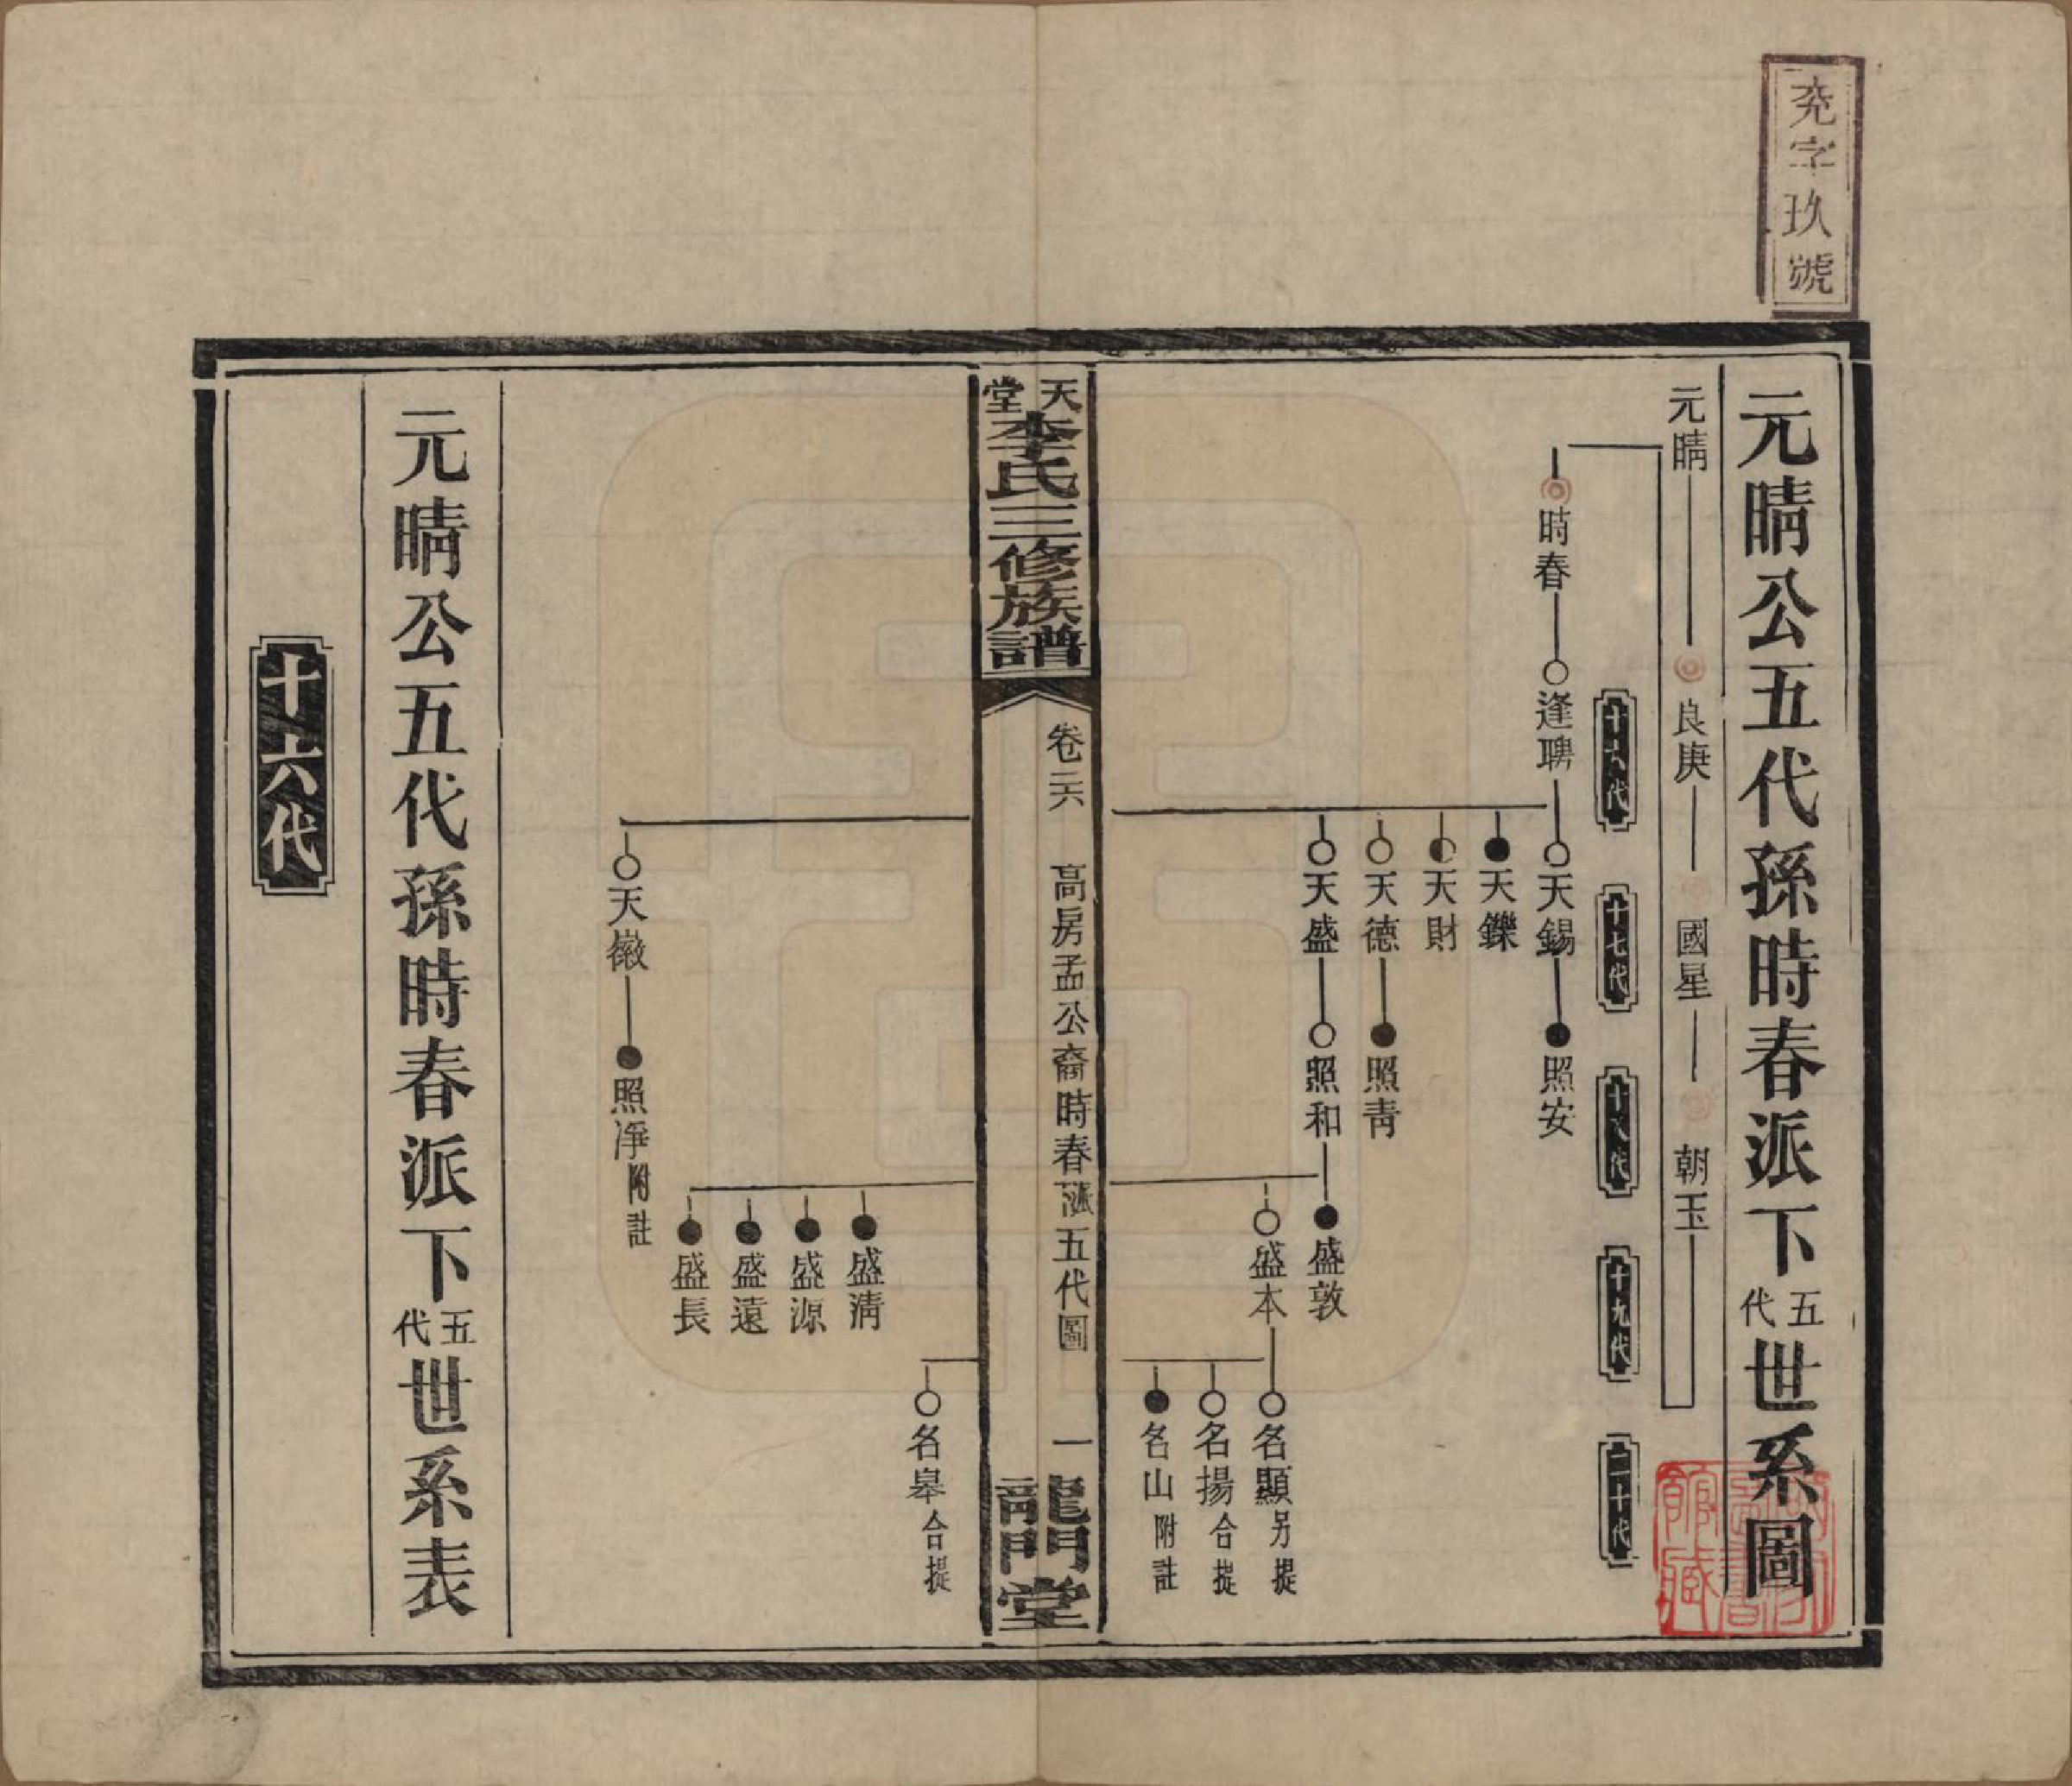 充字玖號
元晴公五代孫時春派下五代世系圖
元晴 良庚 國星 朝玉
十六代 十七代 十八代 十九代 二十代
時春 逢聘 天錫 照安
天鑠
天財
天德 照青
天盛 照和 盛敦
盛本 名顯另提
名揚合提
名山附註
天堂李氏三修族譜
卷二六 高房孟公裔時春派五代圖 一
龍門堂
名皋合提
盛清
盛源
盛遠
盛長
天徽 照淨附註
元晴公五代孫時春派下五代世系表
十六代